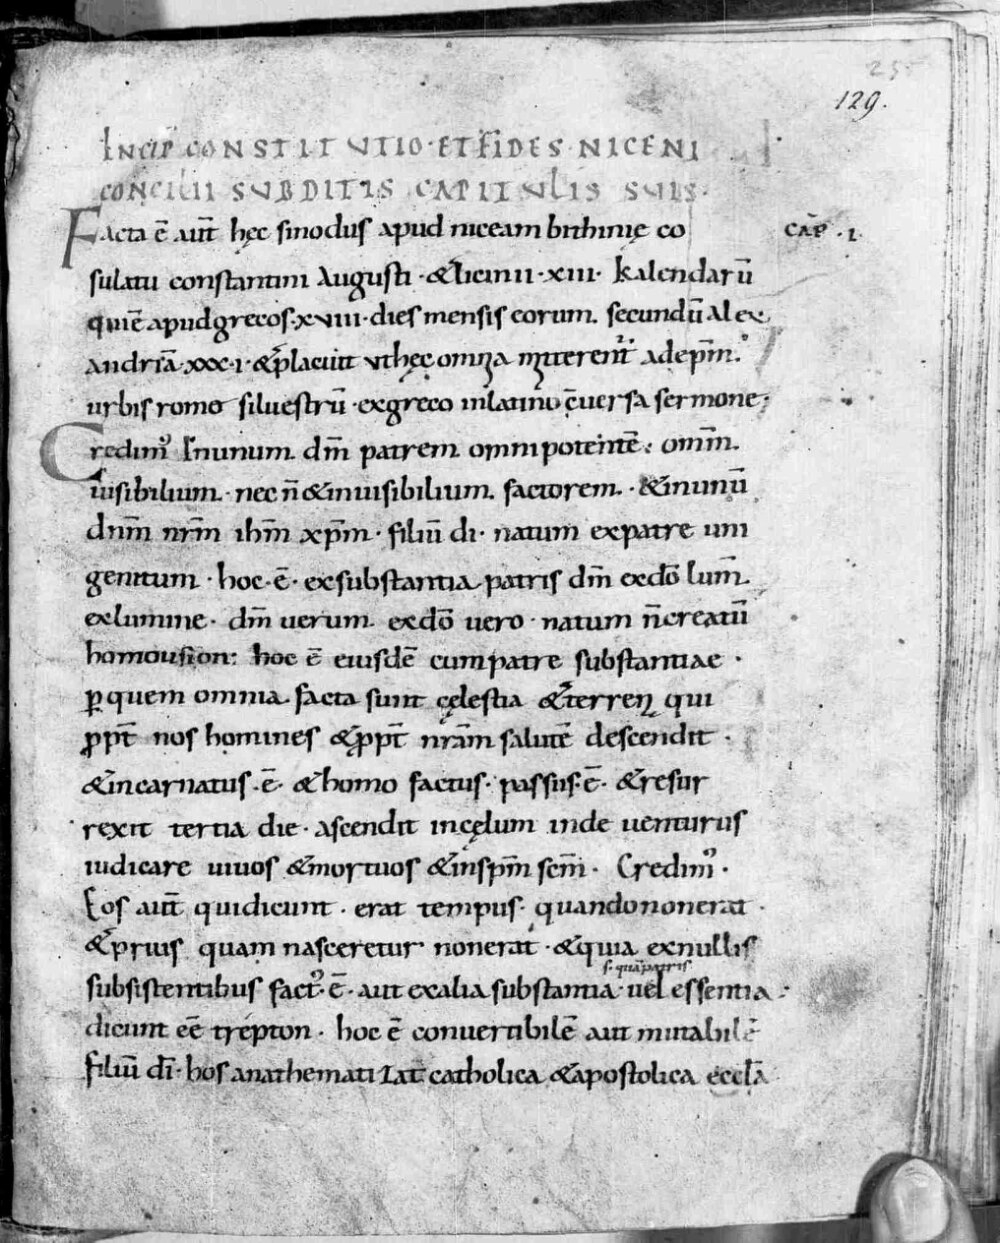 25
129.
INCIP CONSTITVTIO·ET FIDES NICENI
CONCILII SVBDITIS CAPITVLIS SVIS·
Facta ē aut̄ hęc sinodus apud niceam bithinię co
CAP̄ ·I·
sulatu constantini Augusti ·&licinii·xiii· kalendarū
quiē apud grecos·xviiii·dies mensis eorum. secundū Alex
andriā·xxx·i·&placuit vt hęc omnia mitterent̄ ad ep̄m.
urbis rome siluestrū·exgreco inlatinū c̄uersa sermone;
Credim᾽ Inunum dm̄ patrem omnipotentē: omm̄.
iuisibilium· nec n̄ &inuisibilium. factorem.·&inunū
dnm̄ nrm̄ ihm̄ xp̄m· filiū di· natum expatre uni
genitum·hoc·ē·exsubstantia patris dm̄ exdō lum̄.
exlumine· dm̄ uerum. exdō uero·natum n̄creatū
homousion: hoc ē eiusdē cum patre substantiae·
ꝑquem omnia. facta sunt cęlestia &terren qui
ꝓpt̄ nos homines &ꝓpt̄ nrām salutē descendit·
&incarnatus·ē· &homo factus·passus·ē· &resur
rexit tertia die·ascendit incęlum inde uenturus
iudicare uiuos &mortuos &inspm̄ scm̄· Credim᾽·
Eos aut̄ quidicunt·erat tempus·quandononerat·
&prius quam nasceretur nonerat·&quia exnullis
s·quā patris
subsistentibus fact᾽·ē·aut exalia substantia·uel essentia·
dicunt eē trépton· hoc ē conuertibilē aut mutabilē
filiū dī·hos anathematizat catholica &apostolica eccl̄a